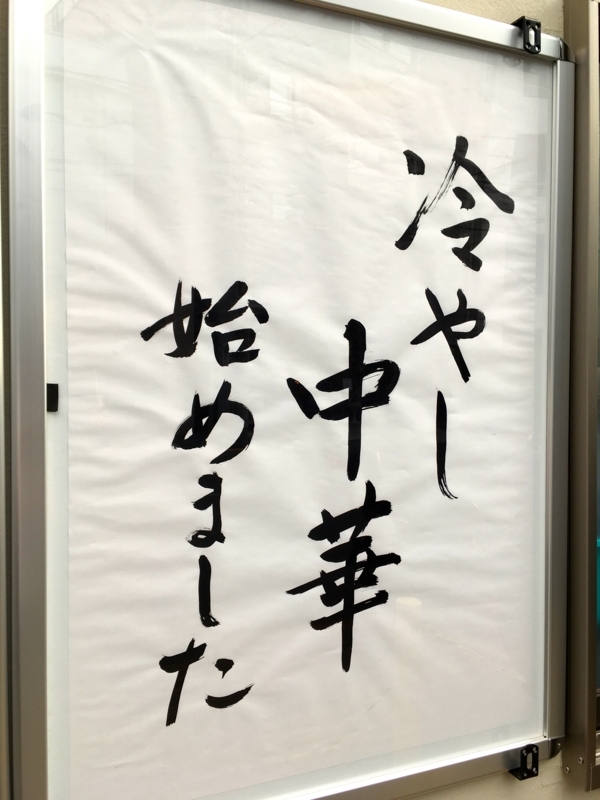 冷やし
中華
始めました